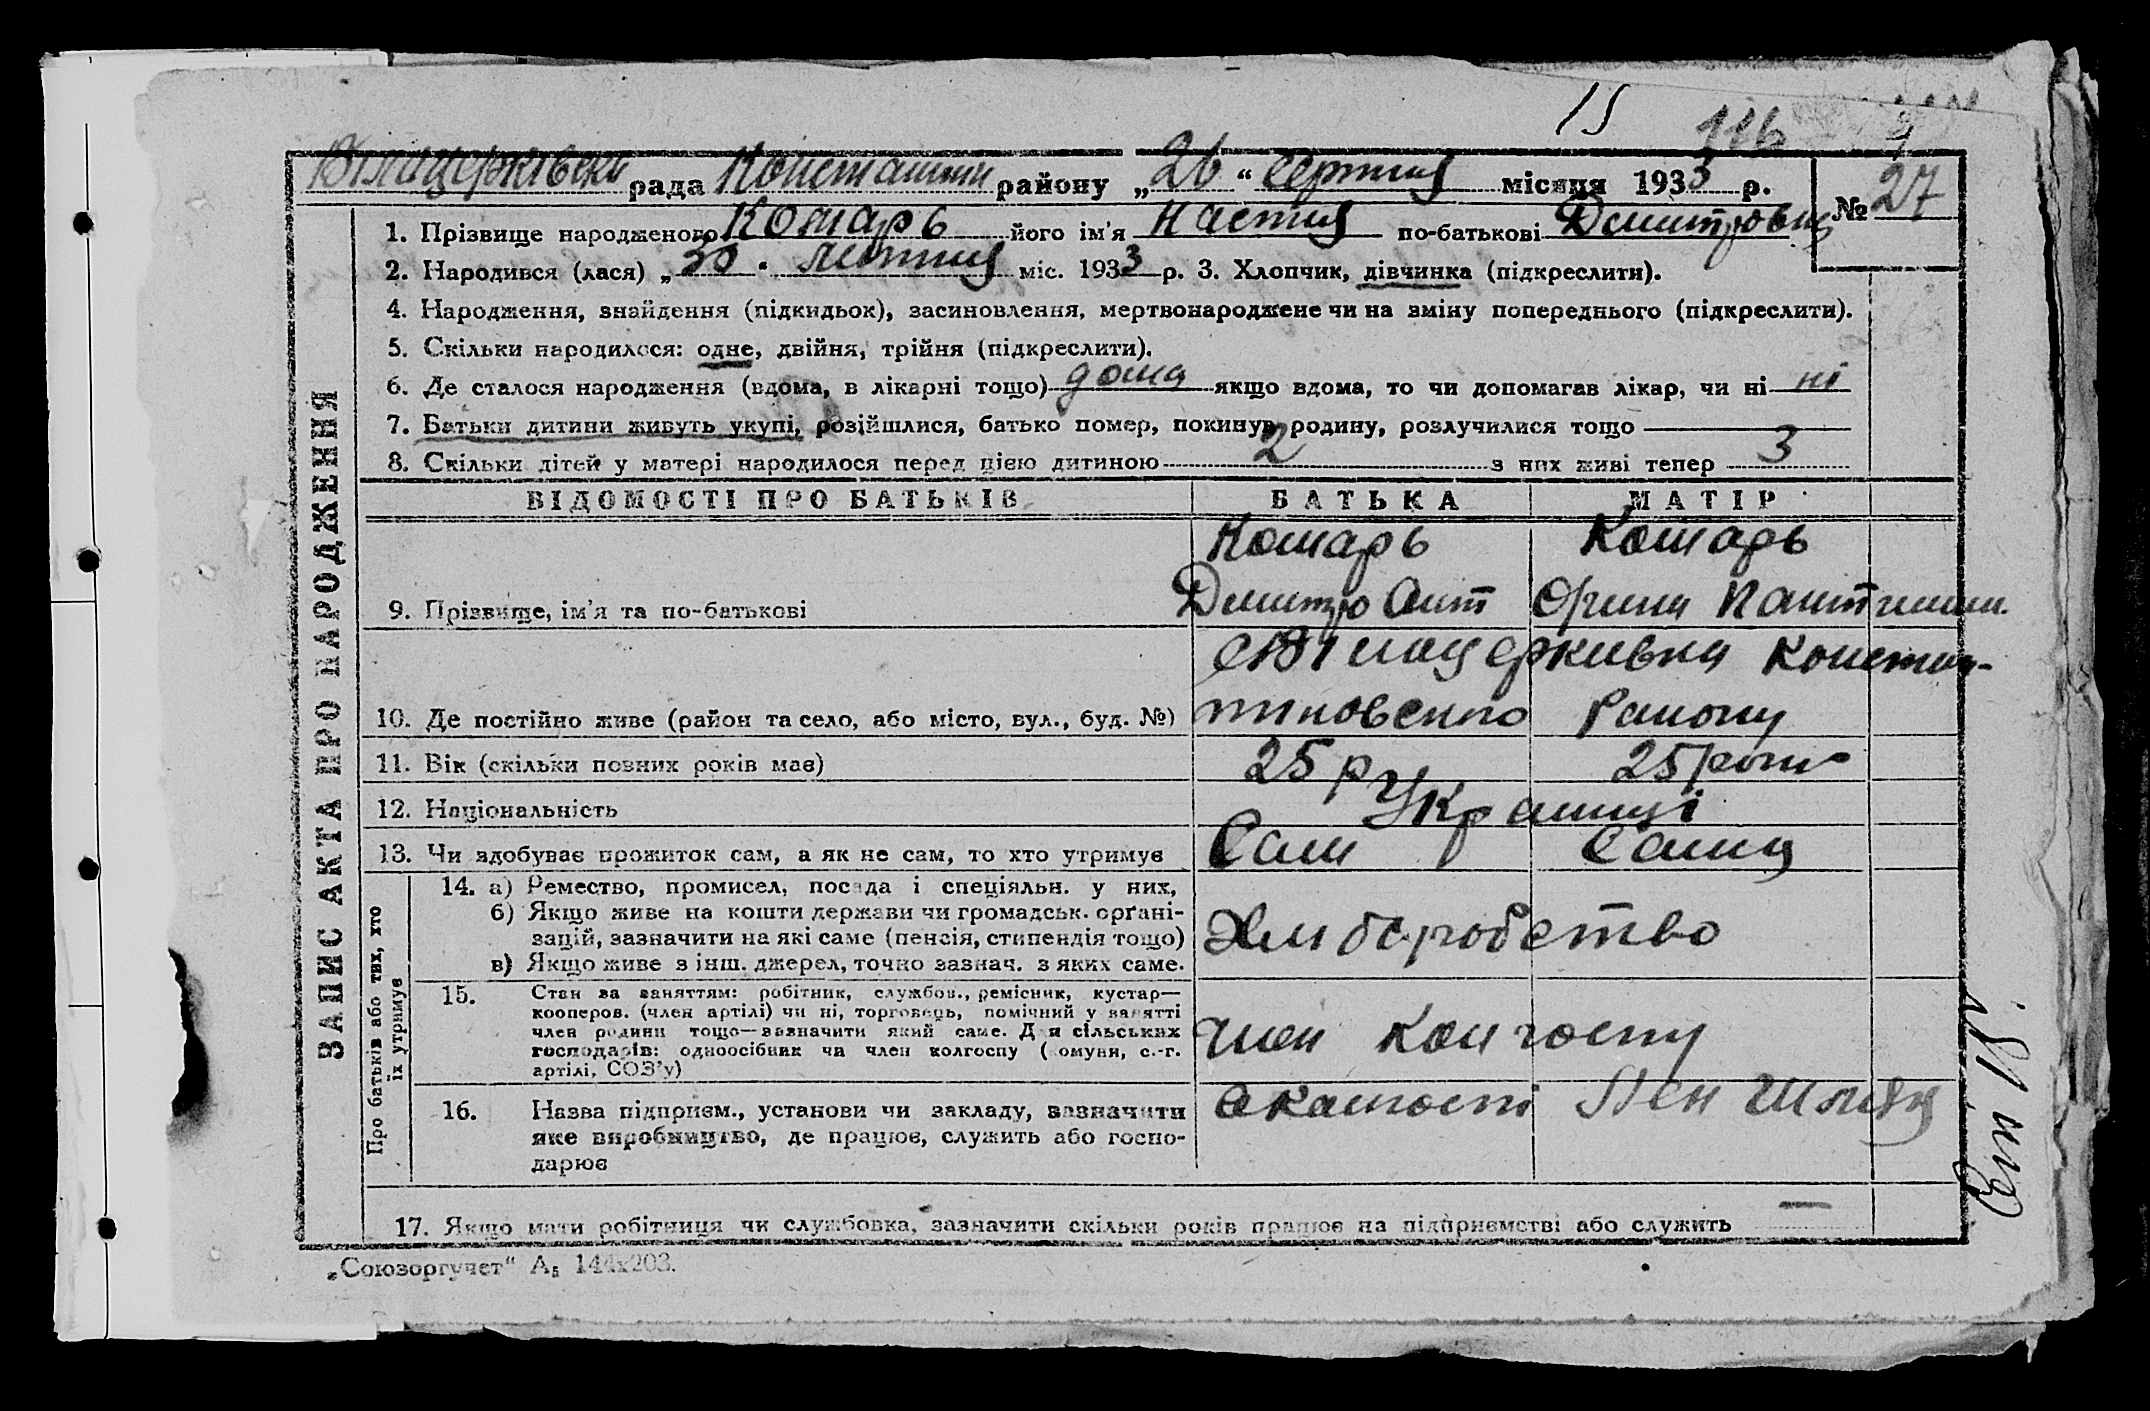 15
116
Білоцерківськ рада Констянтин району „26“ серпня місяця 1933 р. № 27
1. Прізвище народженого Комарь його ім'я Настия по-батькові Дмитровна
2. Народився (лася) „30“ липния міс. 1933 р. 3. Хлопчик, дівчинка (підкреслити).
4. Народження, знайдення (підкидьок), засиновлення, мертвонароджене чи на зміну попереднього (підкреслити).
5. Скільки народилося: одне, двійня, трійня (підкреслити).
6. Де сталося народження (вдома, в лікарні тощо) дома якщо вдома, то чи допомагав лікар, чи ні ні
7. Батьки дитини живуть укупі, розійшлися, батько помер, покинув родину, розлучилися тощо
8. Скільки дітей у матері народилося перед цією дитиною 2 з них живі тепер 3
ЗАПИС АКТА ПРО НАРОДЖЕННЯ
ВІДОМОСТІ ПРО БАТЬКІВ БАТЬКА МАТІР
Комарь Комарь
9. Прізвище, ім'я та по-батькові Дмитро Ант Орина
Білоцерковка Констян-
10. Де постійно живе (район та село, або місто, вул., буд. №) тиновского Району
11. Вік (скільки повних років має) 25 р 25 роки
12. Національність Українці
13. Чи здобуває прожиток сам, а як не сам, то хто утримує Сам Сама
Про батьків або тих, хто їх утримує
14. а) Ремество, промисел, посада і спеціяльн. у них,
б) Якщо живе на кошти держави чи громадськ. орґані-
зацій, зазначити на які саме (пенсія, стипендія тощо) Хлиборобство
в) Якщо живе з інш. джерел, точно зазнач. з яких саме.
15. Стан за заняттям: робітник, службов., ремісник, кустар—
кооперов. (член артілі) чи ні, торговець, помічний у занятті
член родини тощо—зазначити який саме. Для сільських
господарів: одноосібник чи член колгоспу (комуни, с.-г. член колгоспу
артілі, СОЗ'у)
16. Назва підприєм., установи чи закладу, зазначити
яке виробництво, де працює, служить або госпо-
дарює
17. Якщо мати робітниця чи службовка, зазначити скільки років працює на підприємстві або служить —
„Союзоргучет“ А₅ 144х203.